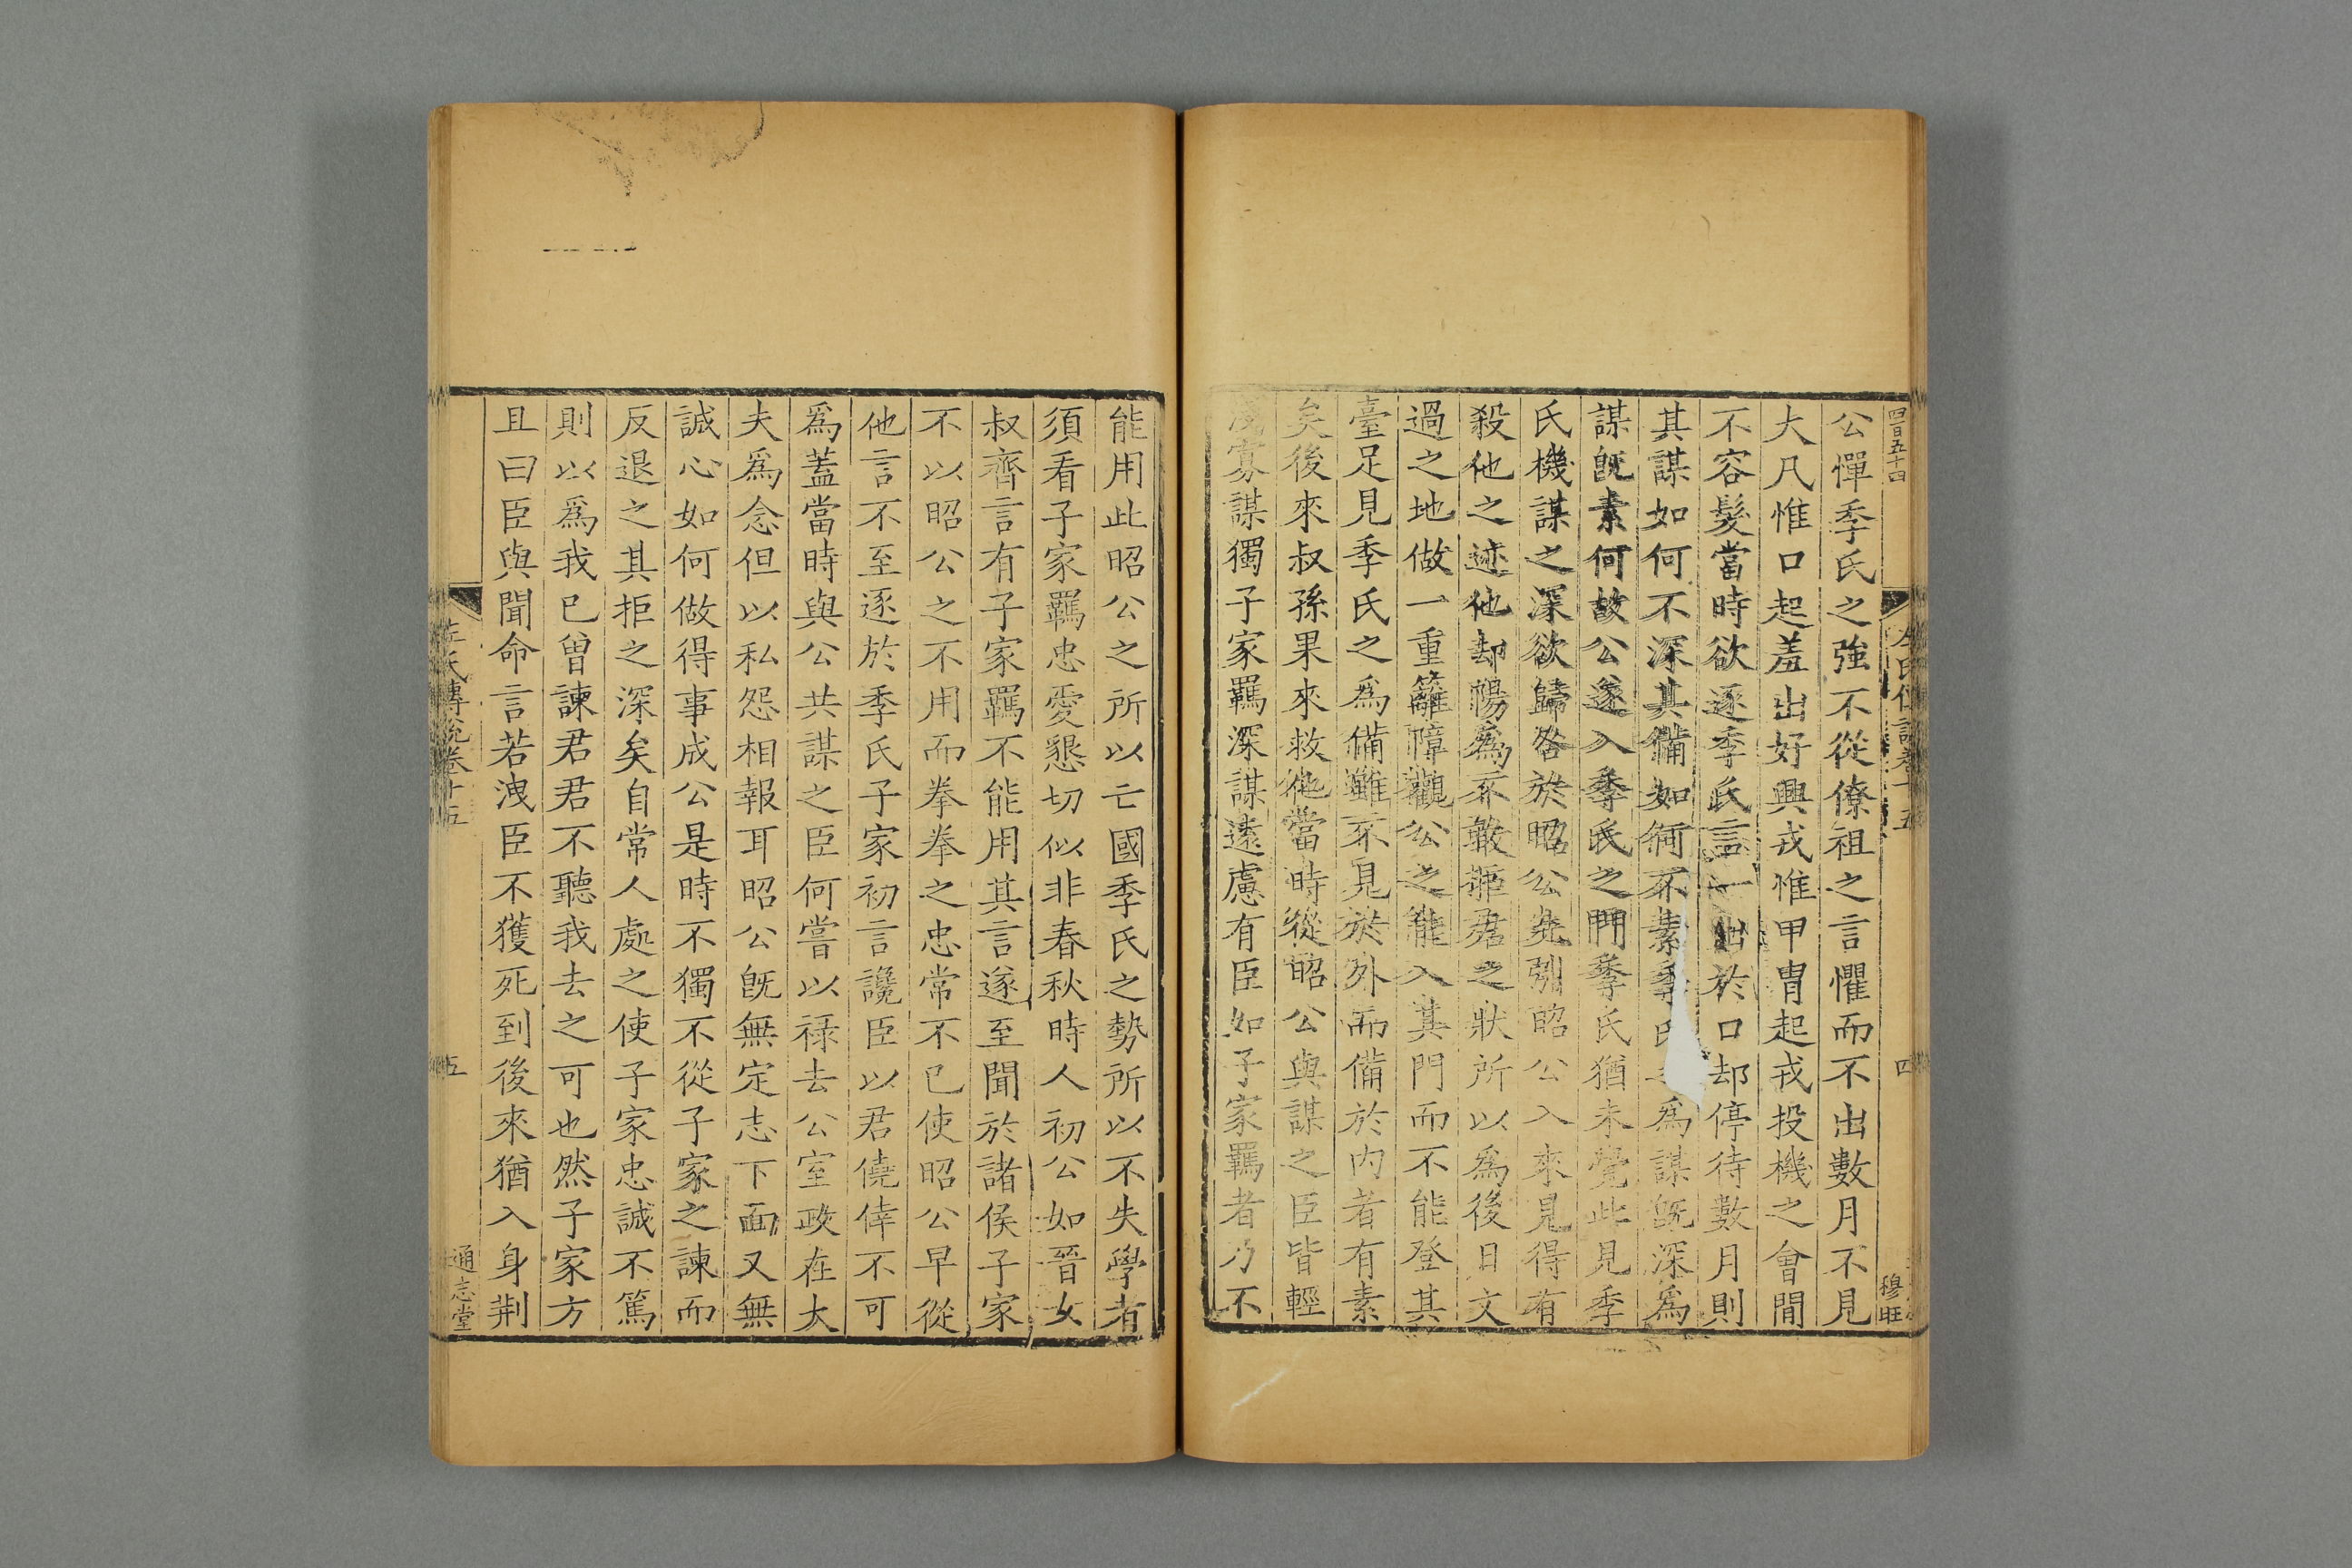 四百五十四
四
穆旺
公憚季氏之強不從僚祖之言懼而不出數月不見
大凡惟口起羞出好興戎惟甲冑起戎投機之會間
不容髮當時欲逐季氏言一出於口却停待數月則
其謀如何不深其備如何不素季氏之爲謀旣深爲
謀旣素何故公遂入季氏之門季氏猶未覺此見季
氏機謀之深欲歸咎於昭公先引昭公入來見得有
殺他之迹他却陽爲不敢拒君之狀所以爲後日文
過之地做一重籬障觀公之能入其門而不能登其
臺足見季氏之爲備雖不見於外而備於内者有素
矣後來叔孫果來救他當時從昭公與謀之臣皆輕
慮寡謀獨子家羈深謀遠慮有臣如子家羈者乃不
能用此昭公之所以亡國季氏之勢所以不失學者
須看子家羈忠愛懇切似非春秋時人初公如晉女
叔齊言有子家羈不能用其言遂至聞於諸侯子家
不以昭公之不用而拳拳之忠常不已使昭公早從
他言不至逐於季氏子家初言讒臣以君僥倖不可
爲蓋當時與公共謀之臣何嘗以祿去公室政在大
夫爲念但以私怨相報耳昭公旣無定志下面又無
誠心如何做得事成公是時不獨不從子家之諫而
反退之其拒之深矣自常人處之使子家忠誠不篤
則以爲我已曾諫君君不聽我去之可也然子家方
且曰臣與聞命言若洩臣不獲死到後來猶入身荆
左氏傳說卷十五
五
通志堂